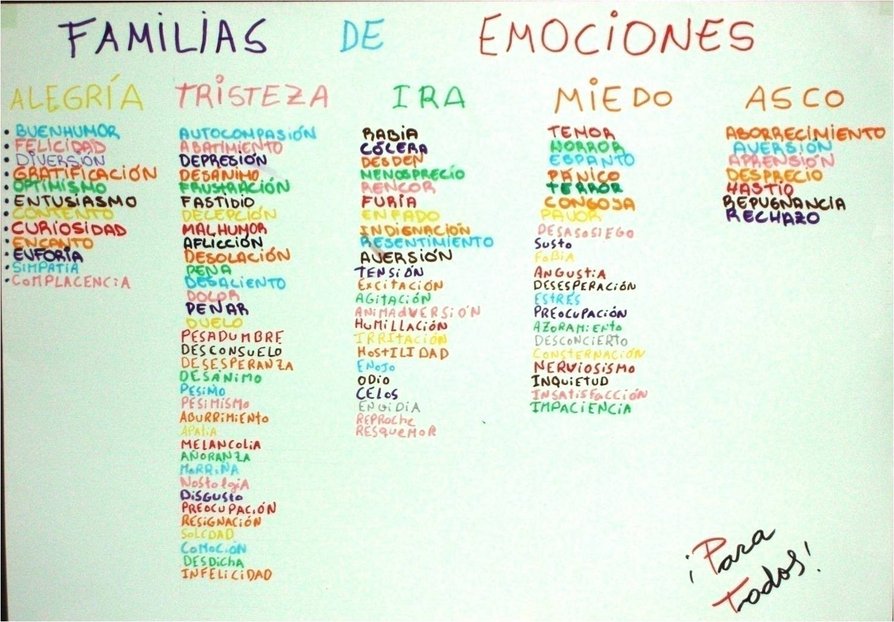 FAMILIAS DE EMOCIONES
ALEGRÍA
• BUENHUMOR
• FELICIDAD
• DIVERSIÓN
• GRATIFICACIÓN
• OPTIMISMO
• ENTUSIASMO
• CONTENTO
• CURIOSIDAD
• ENCANTO
• EUFORIA
• SIMPATIA
• COMPLACENCIA
TRISTEZA
AUTOCOMPASIÓN
ABATIMIENTO
DEPRESIÓN
DESANIMO
FRUSTRACIÓN
FASTIDIO
DECEPCIÓN
MALHUMOR
AFLICCIÓN
DESOLACIÓN
PENA
DESALIENTO
DOLOR
PENAR
DUELO
PESADUMBRE
DESCONSUELO
DESESPERANZA
DESÁNIMO
PESIMO
PESIMISMO
ABURRIMIENTO
APATIA
MELANCOLIA
AÑORANZA
MORRIÑA
NOSTOLGIA
DISGUSTO
PREOCUPACIÓN
RESIGNACIÓN
SOLEDAD
COMOCIÓN
DESDICHA
INFELICIDAD
IRA
RABIA
CÓLERA
DESDEN
MENOSPRECIO
RENCOR
FURIA
ENFADO
INDIGNACIÓN
RESENTIMIENTO
AVERSIÓN
TENSIÓN
EXCITACIÓN
AGITACIÓN
ANIMADVERSIÓN
HUMILLACIÓN
IRRITACIÓN
HOSTILIDAD
ENOJO
ODIO
CELOS
ENBIDIA
REPROCHE
RESQUEMOR
MIEDO
TEMOR
HORROR
ESPANTO
PÁNICO
TERROR
CONGOJA
PAVOR
DESASOSIEGO
SUSTO
FOBIA
ANGUSTIA
DESESPERACIÓN
ESTRÉS
PREOCUPACIÓN
AZORAMIENTO
DESCONCIERTO
CONSTERNACIÓN
NERVIOSISMO
INQUIETUD
INSATISFACCIÓN
IMPACIENCIA
ASCO
ABORRECIMIENTO
AVERSIÓN
APRENSIÓN
DESPRECIO
HASTIO
REPUGNANCIA
RECHAZO
¡Para
Todos!